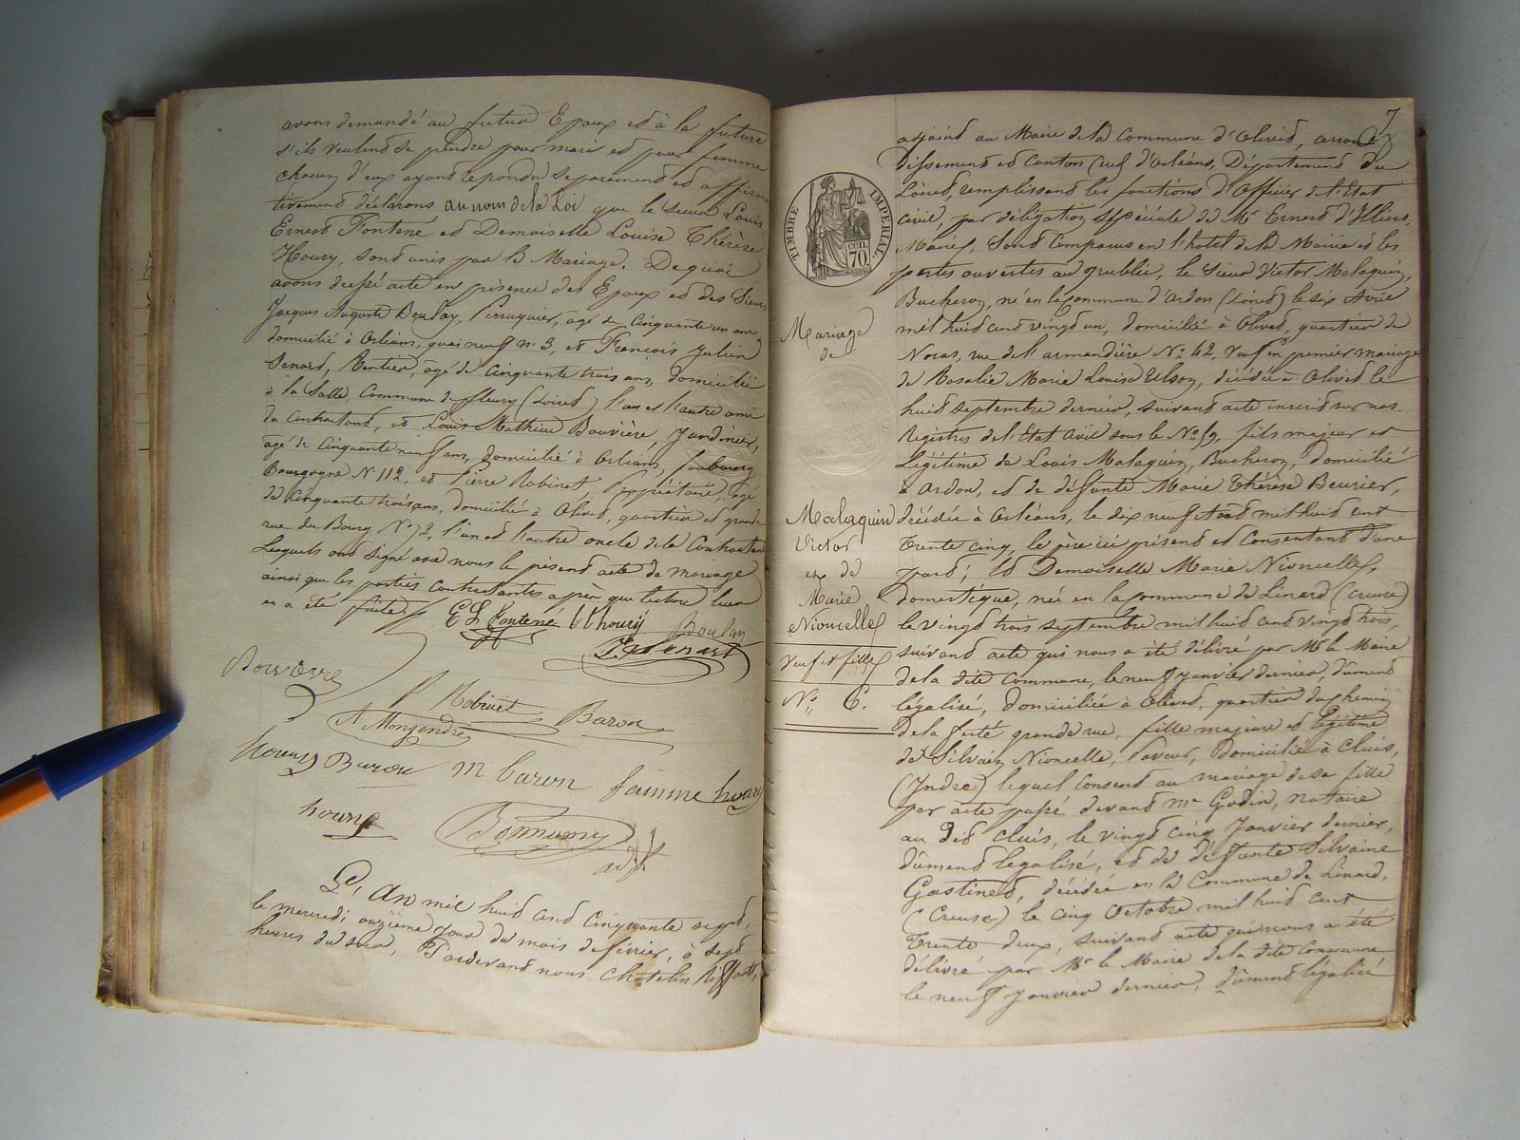 avons demandé au futur Epoux et à la future
s'ils veulent se prendre pour mari et pour femme
chacun d'eux ayant répondu séparément et affirma
tivement déclarons au nom de la Loi que le Sieur Louis
Ernest Fontené et Demoiselle Louise Thérèse
Houry, sont unis par le Mariage. De quoi
avons dressé acte en présence des Epoux et des Sieurs
Jacques Auguste Boulay, Perruquier, agé de Cinquante un ans
domicilié à Orléans, quai neuf n. 3, et François Julien
Senard, Rentier, agé de cinquante trois ans, domicilié
à la Salle Commune de fleury (Loiret) l'un et l'autre amis
du contractant, et Louis Mathieu Bouvière, Jardinier,
agé de Cinquante neuf ans, domicilié à Orléans, faubourg
Bourgogne N° 112. et Pierre Robinet Propriétaire, agé
de Cinquante trois ans, domicilié à Olivet, quartier et grande
rue du Bourg, N° 72, l'un et l'autre oncle de la Contractante
Lesquels ont signé avec nous le présent acte de mariage
ainsi que les parties contractantes après que lecture leur
en a été faite.
E L Fontené L t houry Boulay
Bouvière
P Robinet Baron
A Mongendre
houry Baron m baron famme houry
houry Bonnemy
adjt
L'An mil huit cent cinquante sept,
le mercredi onzième jour du mois de février, à sept
heures du soir, Pardevant nous
7
TIMBRE IMPERIAL
CEN. 70
Mariage
de
Malaquin
Victor
et de
Marie
Nioncelle
Veuf et fille
N° 6.
adjoint au Maire de la Commune d'Olivet, arron
dissement et canton sud d'Orléans, Département du
Loiret, remplissant les fonctions d'Officier de l'Etat
civil, par délégation spéciale de Mr Ernest d'Illiers,
Maire, Sont Comparus en l'hotel de la Mairie et les
portes ouvertes au public, le Sieur Victor Malaquin,
Bucheron, né en la commune d'Ardon (Loiret) le six Avril
mil huit cent vingt un, domicilié à Olivet, quartier de
Noras, rue de l'armandière N° 42, Veuf en premier mariage
de Rosalie Marie Louise décédée à Olivet le
huit septembre dernier, suivant acte inscrit sur nos
Registres de l'Etat Civil sous le N° 59, fils majeur et
Légitime de Louis Malaquin, Bucheron, domicilié
à Ardon, et de défunte Marie Thérèse Beurier,
décédée à Orléans, le dix neuf Aout mil huit cent
trente cinq, le père ici présent et Consentant d'une
part; Et Demoiselle Marie Nioncelle,
domestique, née en la commune de Linard (Creuse)
le vingt trois septembre mil huit cent vingt trois,
suivant acte qui nous a été délivré par Mr le Maire
de la dite Commune, le neuf janvier dernier, dument
légalisé, domiciliée à Olivet, quartier du chemin
de la ferté grande rue, fille majeure et légitime
de Silvain Nioncelle, Paveur, Domicilié à Cluis,
(Indre) lequel consent au mariage de sa fille
par acte passé devant me Godin, notaire
au dit Cluis, le vingt cinq Janvier dernier,
dument legalisé, et de défunte Silvaine
Gastinet, décédée en la Commune de Linard,
(Creuse) le cinq Octobre mil huit cent
trente deux, suivant acte qui nous a été
délivré par Mr le Maire de la dite Commune
le neuf janvier dernier, dument légalisé